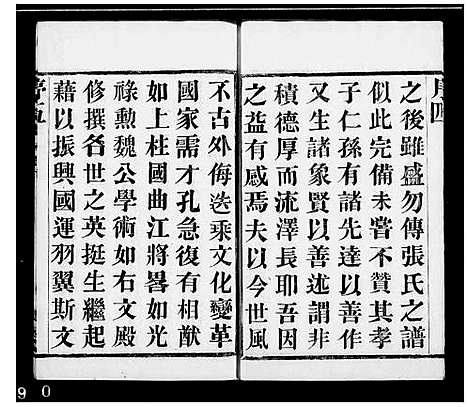 序四
之後雖盛勿傳張氏之譜
似此完備未嘗不贊其孝
子仁孫有諸先達以善作
又生諸象賢以善述謂非
積德厚而流澤長耶吾因
之益有感焉夫以今世風
不古外侮迭乘文化變革
國家需才孔急復有相猷
如上柱國曲江將畧如光
祿勲魏公學術如右文殿
修撰各世之英挺生繼起
藉以振興國運羽翼斯文
9 0